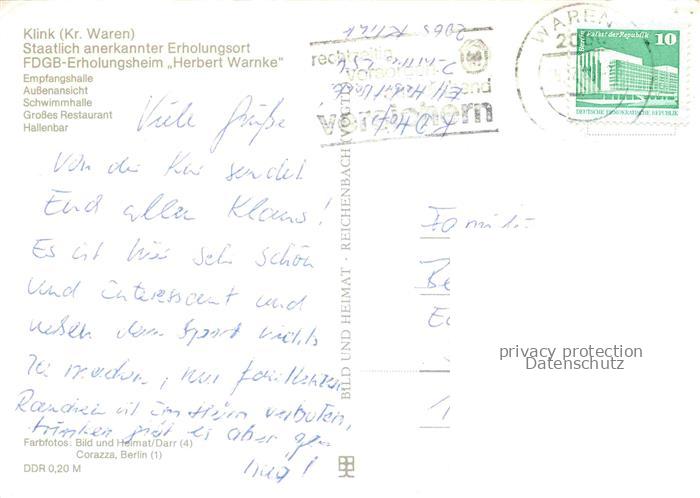 Klink (Kr. Waren)
Staatlich anerkannter Erholungsort
FDGB-Erholungsheim „Herbert Warnke"
Empfangshalle
Außenansicht
Schwimmhalle
Großes Restaurant
Hallenbar
Viele Grüße
von der Kur sendet
Euch allen Klaus!
Es ist hier sehr schön
und interessant und
neben dem Sport nichts
zu machen, nur
Rauchen ist im Heim verboten,
trinken gibt es aber ge-
nug!
Farbfotos: Bild und Heimat/Darr (4)
Corazza, Berlin (1)
DDR 0,20 M
BILD UND HEIMAT · REICHENBACH (VOGTL
2065 Klink
rechtzeitig
vorsorgen
versichern
WAREN
Berlin Palast der Republik
10
DEUTSCHE DEMOKRATISCHE REPUBLIK
Familie
Be
privacy protection
Datenschutz